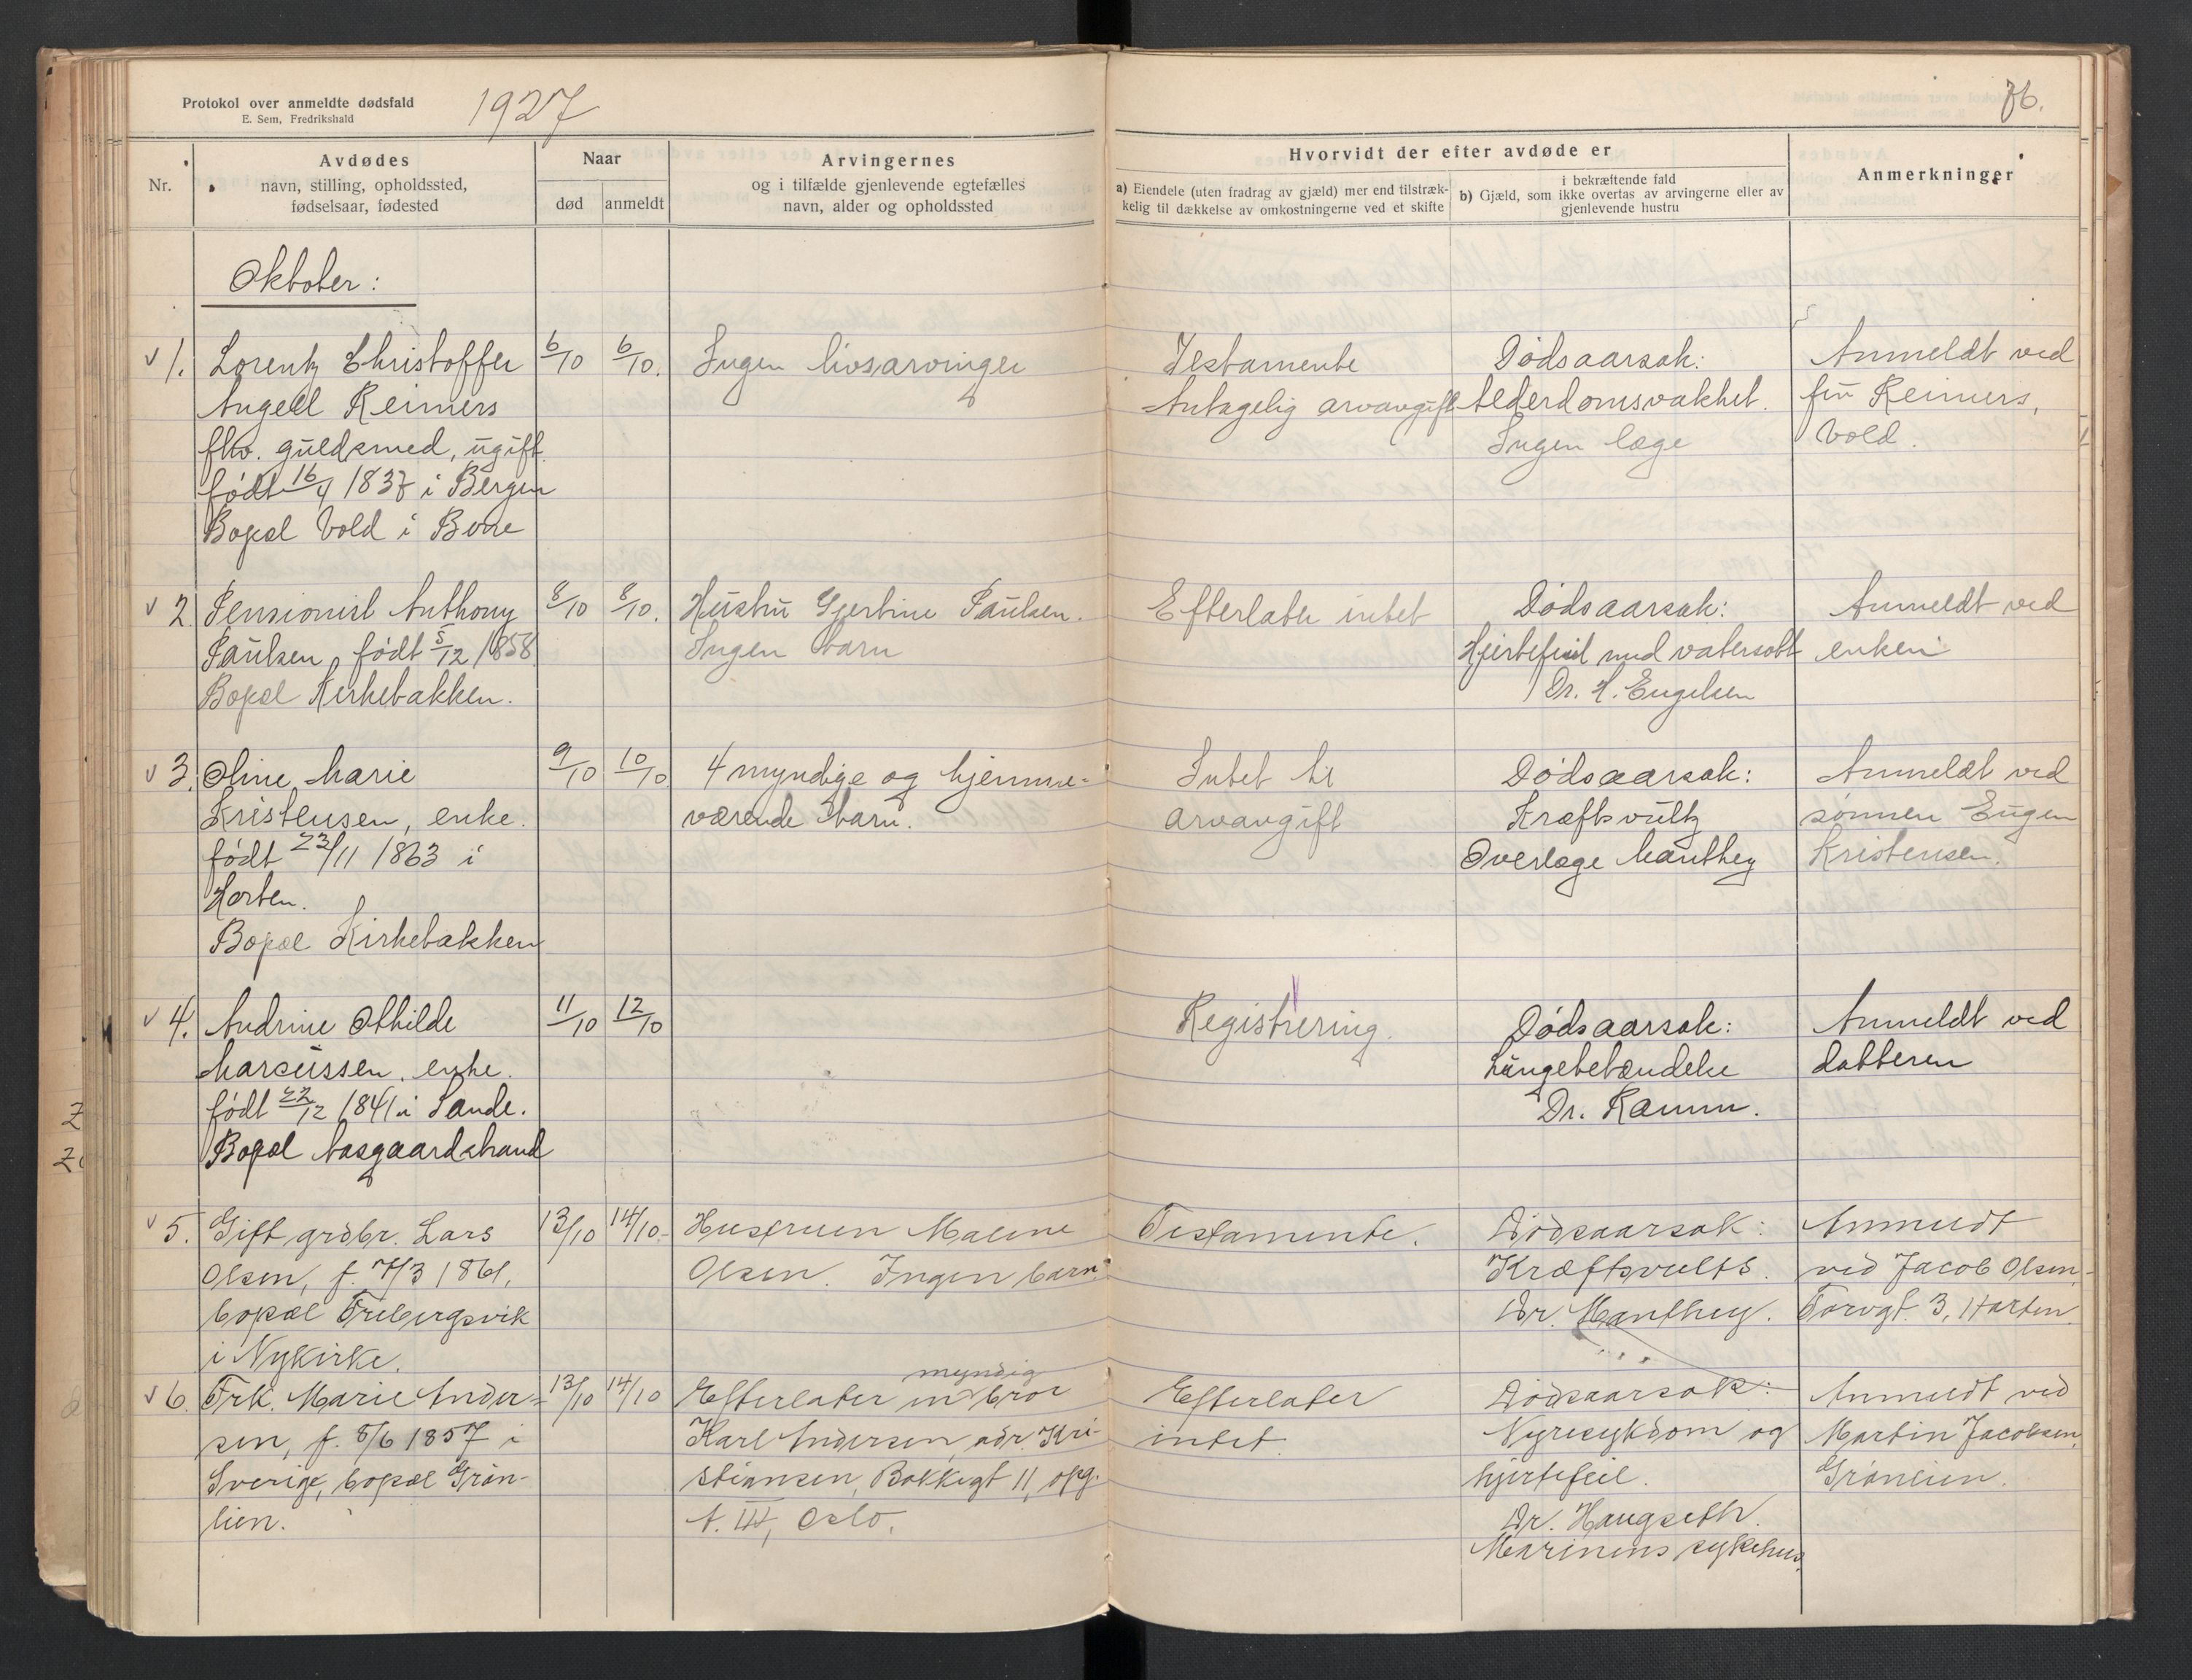 Protokol over anmeldte dødsfald
E. Sem, Fredrikshald
1927
76.
Nr.
Avdødes
navn, stilling, opholdssted,
fødselsaar, fødested
Naar
død
anmeldt
Arvingernes
og i tilfælde gjenlevende egtefælles
navn, alder og opholdssted
Hvorvidt der efter avdøde er
a) Eiendele (uten fradrag av gjæld) mer end tilstræk-
kelig til dækkelse av omkostningerne ved et skifte
i bekræftende fald
b) Gjæld, som ikke overtas av arvingerne eller av
gjenlevende hustru
Anmerkninger
Oktober:
v 1.
Lorentz Christoffer
Angell Reimers
fhv. guldsmed, ugift
født 16/4 1837 i Bergen
Bopæl Vold i Borre
6/10
6/10.
Ingen livsarvinger
Testamente
Antagelig arvavgift
Dødsaarsak:
Alderdomsvakhet.
Ingen læge
Anmeldt ved
fru Reimers,
Vold.
v 2.
Pensionist Anthony
Paulsen, født 5/12 1858
Bopæl Kirkebakken.
8/10
8/10.
Hustru Gjertine Paulsen.
Ingen barn
Efterlater intet
Dødsaarsak:
Hjertefeil med vatersott
Dr. H. Engelsen
Anmeldt ved
enken
v 3.
Oline Marie
Kristensen, enke.
født 23/11 1863 i
Horten.
Bopæl Kirkebakken
9/10
10/10
4 myndige og hjemme-
værende barn.
Intet til
arvavgift
Dødsaarsak:
Kræftsvulst
Overlæge Manthey
Anmeldt ved
sønnen Eugen
Kristensen.
v 4.
Andrine Othilde
Marcussen, enke.
født 22/12 1841 i Sande.
Bopæl Aasgaardstrand
11/10
12/10
Registrering.
Dødsaarsak:
Lungebetændelse
Dr. Ramm.
Anmeldt ved
datteren
v 5.
Gift grdbr. Lars
Olsen, f. 7/3 1861,
bopæl Frebergsvik
i Nykirke.
13/10
14/10.
Hustruen Malene
Olsen. Ingen barn.
Testamente.
Dødsaarsak:
Kræftsvulst.
Dr. Manthey.
Anmeldt
ved Jacob Olsen,
Torvgt. 3, Horten.
v 6.
Frk. Marie Ander-
sen, f. 8/6 1857 i
Sverige, bopæl Grøn-
lien.
13/10
14/10
myndig
Efterlater en bror
Karl Andersen, adr. Kri-
stiansen, Bakkegt 11, opg.
A. III, Oslo.
Efterlater
intet.
Dødsaarsak:
Nyresykdom og
hjertefeil.
Dr. Haugseth.
Marinens sykehus.
Anmeldt ved
Martin Jacobsen,
Grønlien.